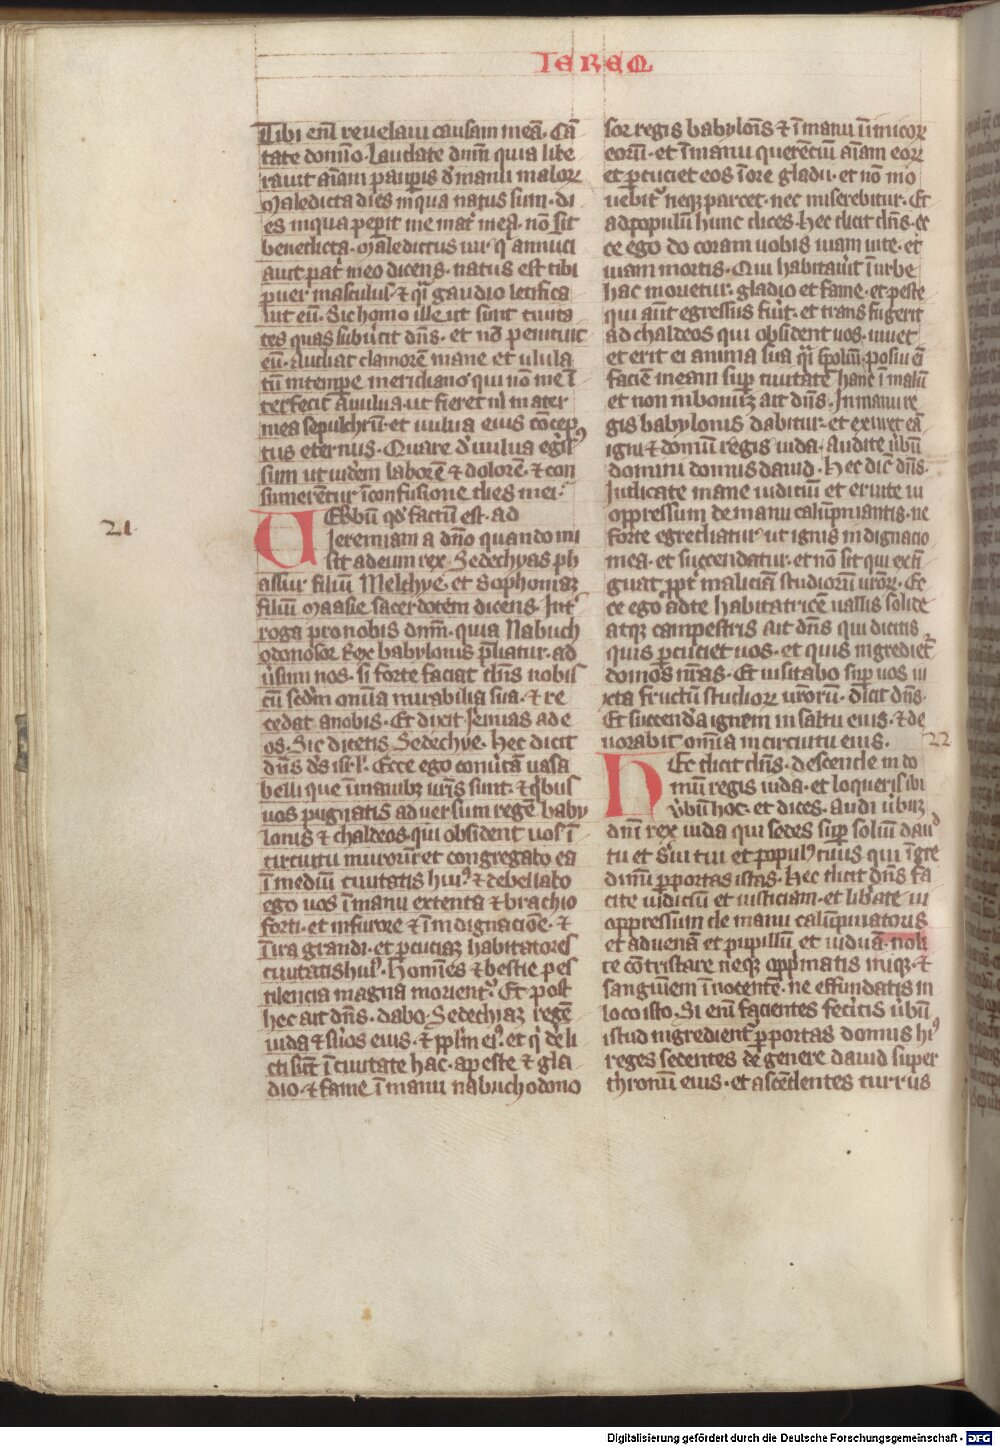 IEREM
Tibi enī reuelaui causam meā. Cā
tate domīo. Laudate dnm̄ quia libe
rauit aīam paupis de manu malor
Maledicta dies in qua natus sum. di
es in qua peperit me mat mea. nō sit
benedicta. Maledictus uir q annūci
auit pat meo dicens. natus est tibi
puer masculus. et q̄i gaudio letifica
uit eū. Sic homo ille ut sunt ciuita
tes quas subuertit dn̄s. et nō penituit
eū. Audiat clamorē mane et ulula
tū in tempe meridiano. qui non me ī
terfecit a uulua. ut fieret m̄ mater
mea sepulchrū. et uulua eius cōcep
tus eternus. Quare de uulua egres
sum ut uiderem laborē et dolorē. et con
sumerētur ī confusione dies mei.
21.
UErbū qd' factū est. ad
Jeremiam a dn̄o quando mi
sit ad eum rex Sedechyas ph
assur filiū Melchye. et Sophoniam
filiū Maasie sacerdotem dicens. Int
roga pro nobis dnm̄. quia Nabuch
odonosor Rex babylonis pliatur. ad
uersum nos. si forte faciat dn̄s nobis
cū scdm omīa mirabilia sua. et re
cedat a nobis. Et dixit Ieremias ad e
os. Sic dicetis Sedechye. Hec dicit
dn̄s ds isrl. Ecce ego conuertā uasa
belli que ī manibz uris sunt. et qbus
uos pugnatis aduersum regē baby
lonis et chaldeos. qui obsident uos ī
circuitu muroru. et congregabo ea
ī medium ciuitatis hui9. et debellabo
ego uos ī manu extenta et brachio
forti. et in furore et ī indignacioē. et
ī ira grandi. et percuciam habitatores
ciuitatis hui9. Homīes et bestie pes
tilencia magna morient. Et post
hec ait dn̄s. dabo. Sedechiaz regē
iuda et suos eius. et pplm̄ ei9. et q dereli
cti sūt ī ciuitate hac. a peste et gla
dio. et fame ī manu nabuchodono
sor regis babylonis et ī manu īimicor
eorū. et ī manu querēciū aīam eor
et percuciet eos ī ore gladii. et nō mo
uebit neqz parcet. nec miserebitur. Et
ad populū hunc dices. Hec dicit dn̄s. ec
ce ego do coram uobis uiam uite. et
uiam mortis. Qui habitauerit ī urbe
hac morietur. gladio et fame. et peste
qui aut egressus fuit. et transfugerit
ad chaldeos qui obsident uos. uiuet
et erit ei anima sua q̄i spoliū. posui em
faciē meam sup ciuitatē hanc ī malū
et non in bonum ait dn̄s. In manu re
gis babylonis dabitur. et exuret eā
igni et domui regis iuda. Audite ubū
domini domus dauid. Hec dic dn̄s.
Iudicate mane iudiciū et eruite ui
oppressum de manu calūpniantis. ne
forte egrediatur ut ignis indignacio
mea. et succendatur. et nō sit qui exti
guat. ppt maliciā studiorū uror. Ec
ce ego ad te habitatricē uallis solide
atqz campestris ait dn̄s qui dicitis
quis percuciet nos. et quis ingrediet
domos nr̄as. Et uisitabo sup uos iu
xta fructū studior urorū. dicit dn̄s.
Et succendā ignem in saltu eius. et de
uorabit omīa in circuitu eius.
22
HEc dicit dn̄s. descende in do
mū regis iuda. et loqueris ibi
ubū hoc. et dices. Audi ubum
dnī rex iuda qui sedes sup soliū dauid
tu et serui tui et popul9 tuus qui īgre
dimī p portas istas. Hec dicit dn̄s fa
cite iudiciū et iusticiam. et liberate ui
oppressum de manu calūpniatoris
et aduenā et pupillū et uiduā. noli
te cōtristare neqz opprimatis iniqz. et
sanguinem īnocentē. ne effundatis in
loco isto. Si enī facientes feceritis ubū
istud ingredient p portas domus hui9
reges sedentes de genere dauid super
thronū eius. et ascēdentes currus
Digitalisierung gefördert durch die Deutsche Forschungsgemeinschaft - DFG